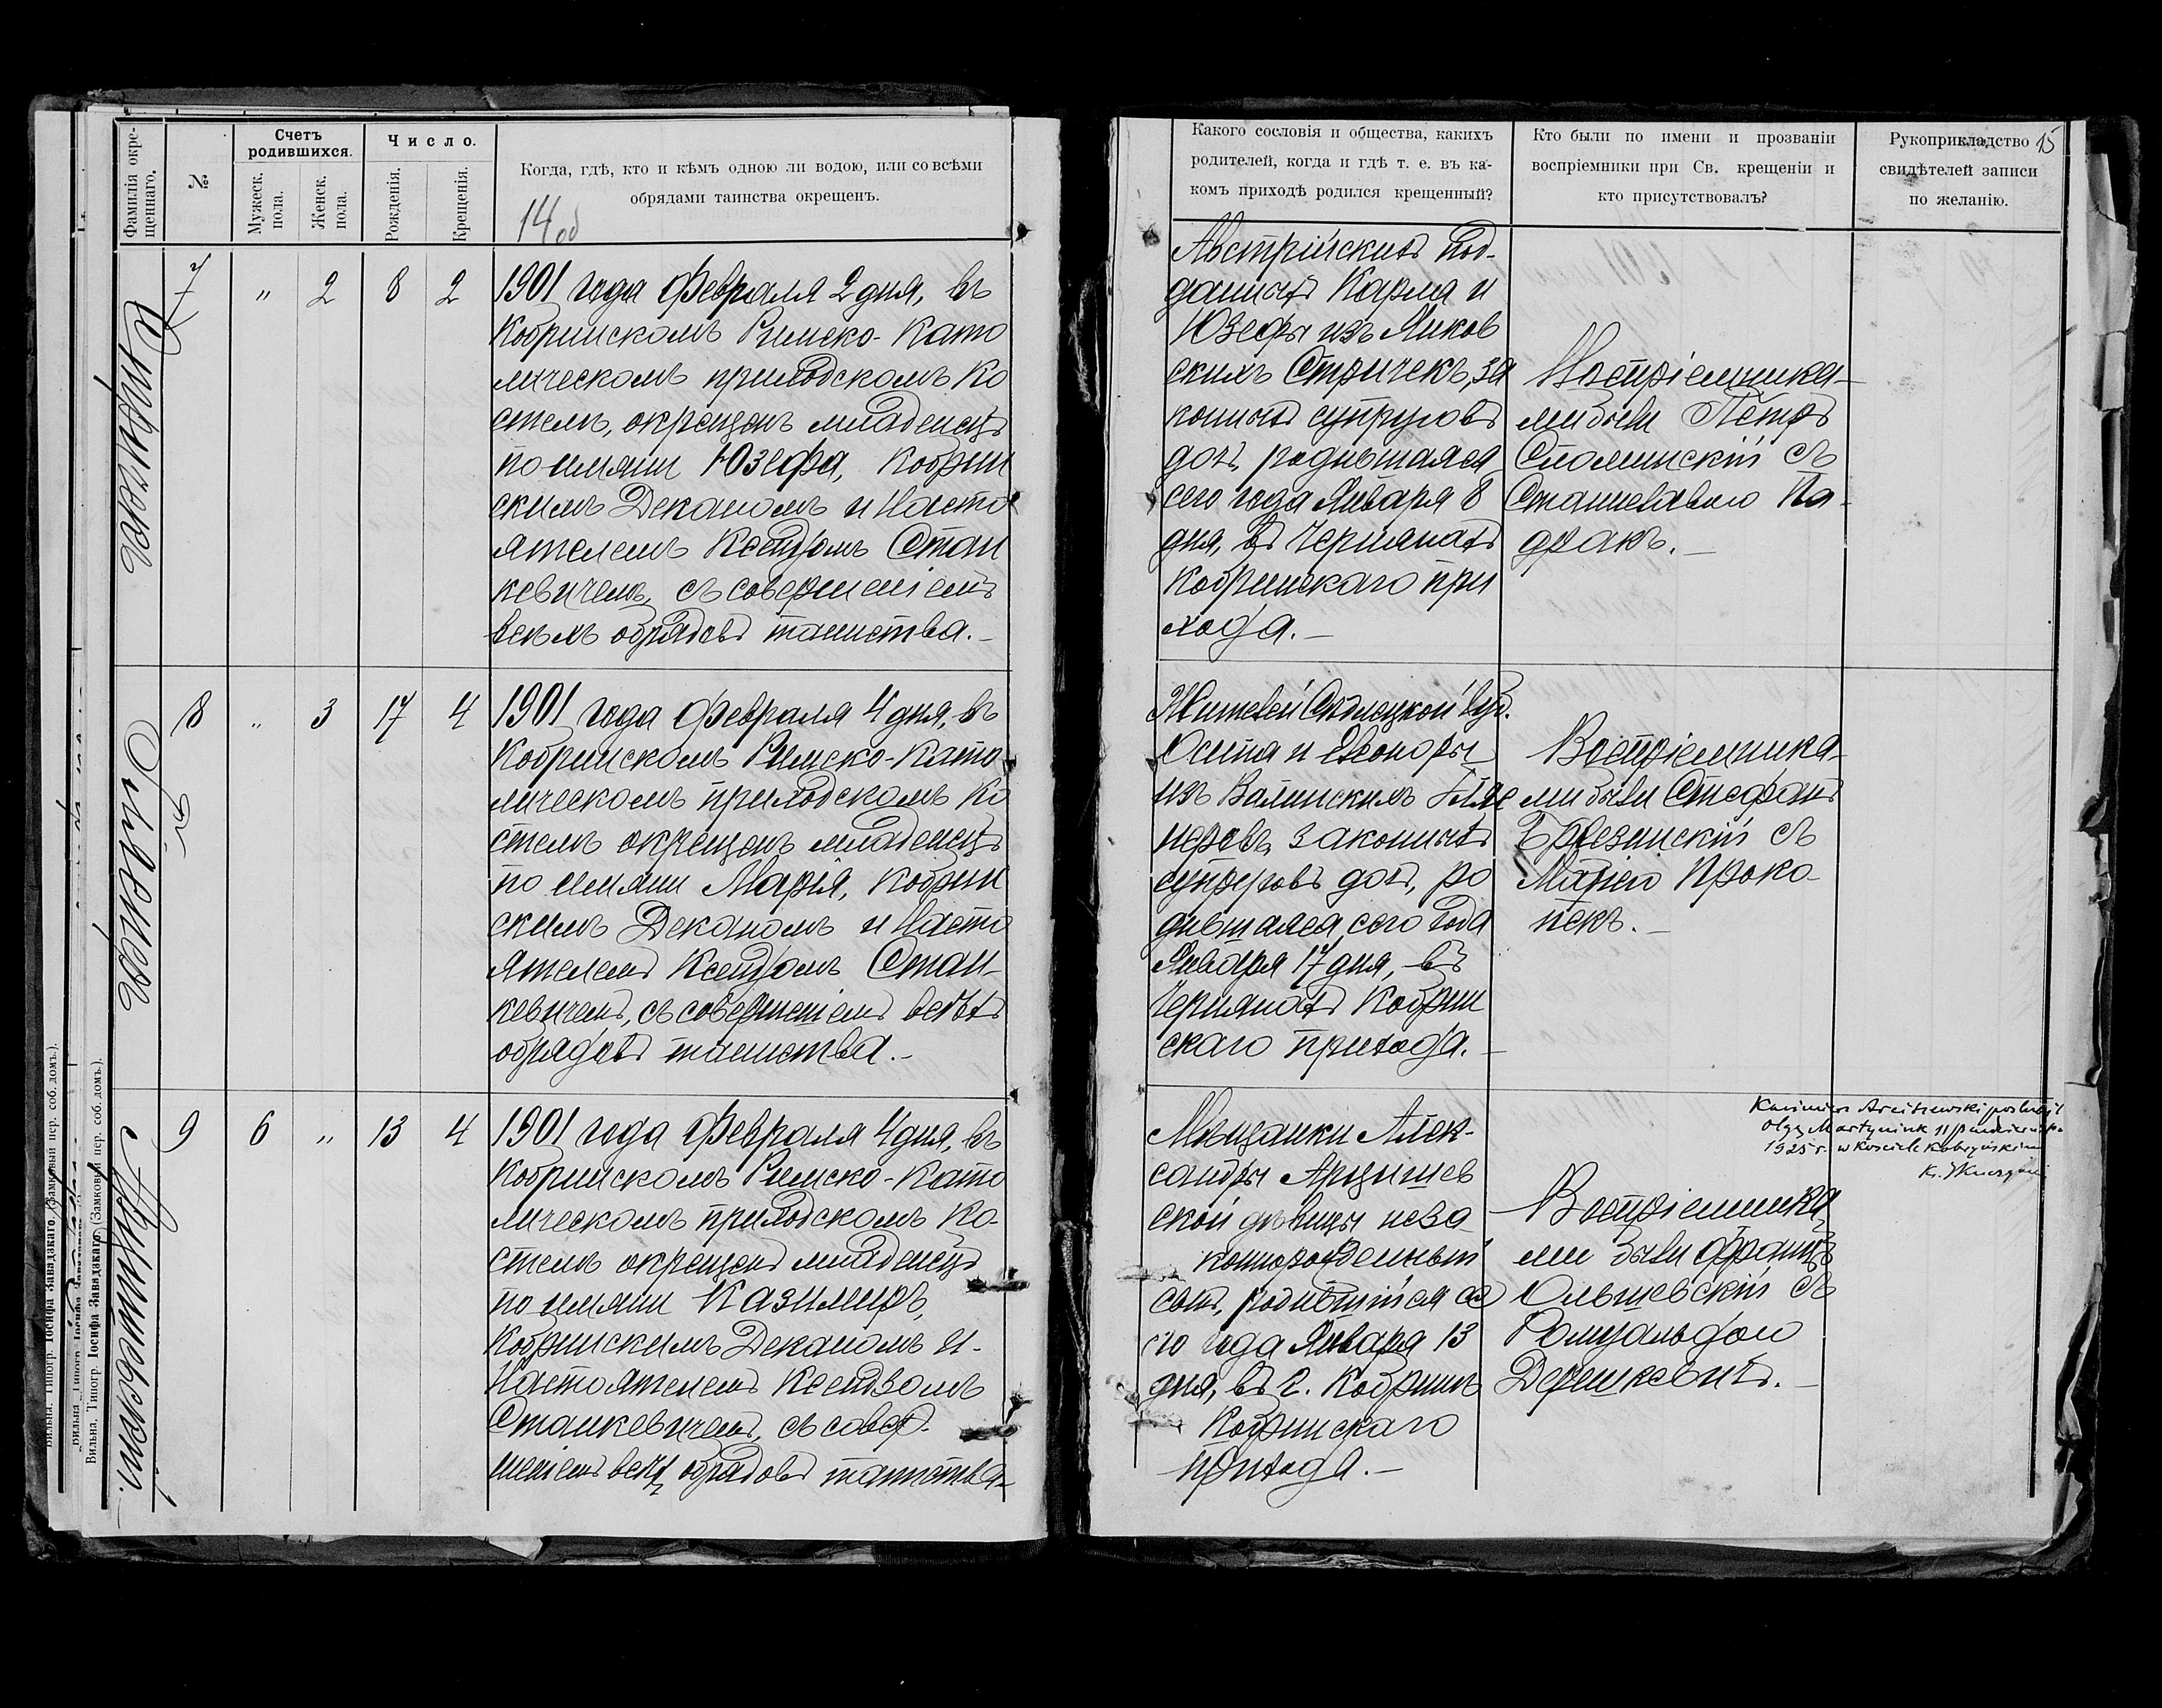 Фамилія окре-
щеннаго.
№
Счетъ
родившихся.
Мужеск.
пола.
Женск.
пола.
Число.
Рожденія.
Крещенія.
Когда, гдѣ, кто и кѣмъ одною ли водою, или со всѣми
обрядами таинства окрещенъ.
14 об
Стричекъ
7
"
2
8
2
1901 года Февраля 2 дня, въ
Кобринскомъ Римско-Като
лическомъ приходскомъ Ко
стелѣ, окрещенъ младенецъ
по имяни Юзефа, Кобрин
скимъ Деканомъ и Насто
ятелемъ Ксендзомъ Стан
кевичемъ, съ совершеніемъ
всѣхъ обрядовъ таинства.-
8
"
3
17
4
1901 года Февраля 4 дня, въ
Кобринскомъ Римско-Като
лическомъ приходскомъ Ко
стелѣ окрещенъ младенецъ
по имяни Марія, Кобрин
скимъ Деканомъ и Насто
ятелемъ Ксендзомъ Стан-
кевичемъ, съ совершеніемъ всѣхъ
обрядовъ таинства.-
Арцишевскій.
9
6
"
13
4
1901 года Февраля 4 дня, въ
Кобринскомъ Римско-Като
лическомъ приходскомъ Ко-
стелѣ окрещенъ младенецъ
по имяни Казимиръ,
Кобринскимъ Деканомъ и-
Настоятелемъ Ксендзомъ
Станкевичемъ, съ совер-
шеніемъ всѣхъ обрядовъ таинства-
Вильна. Типогр. Іосифа Завадзкаго. (Замковый пер. соб. домъ.).
Вильна. Типогр. Іосифа Завадзкаго. (Замковый пер. соб. домъ.).
Какого сословія и общества, какихъ
родителей, когда и гдѣ т. е. въ ка-
комъ приходѣ родился крещенный?
Кто были по имени и прозваніи
воспріемники при Св. крещеніи и
кто присутствовалъ?
Рукоприкладство
свидѣтелей записи
по желанію.
15
Австрійскихъ под-
данныхъ Карла и
Юзефы изъ Янков
скихъ Стричекъ, за
конныхъ супруговъ
дочь, родившаяся
сего года Января 8
дня, въ Чернянахъ
Кобринскаго при
хода.-
Воспріемника-
ми были Петръ
Сломинскій съ
Станиславою Па-
дракъ.-
Жителей Сѣдлецкой губ.
Осипа и Элеоноры
изъ Валинскихъ
неровъ, законныхъ
супруговъ дочь, ро
дившаяся сего года
Января 17 дня, въ
Чернянахъ Кобрин
скаго прихода.-
Воспріемника-
ми были Стефанъ
Брезинскій съ
Маріею Проко-
пекъ.-
Мѣщанки Алек-
сандры Арцишев
ской дѣвицы неза-
коннорожденный
сынъ, родившійся се
го года Января 13
дня, въ г. Кобринѣ
Кобринскаго
прихода.-
Kazimierz Arciszewski poślubił
Olgę Martyniuk 11 października
1925 r. w Kościele Kobryńskim
Воспріемника-
ми были Францъ
Ольшевскій съ
Ромуальдою
Дешкевичъ.-